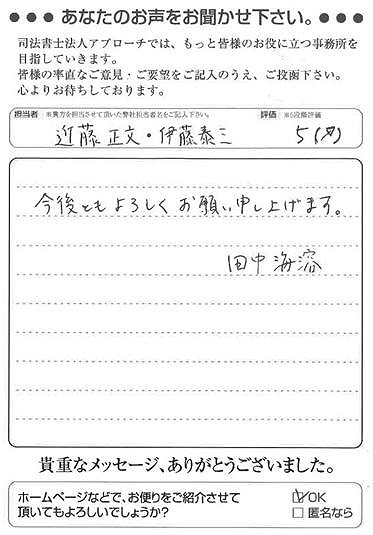 ●●●あなたのお声をお聞かせ下さい。●●●
司法書士法人アプローチでは、もっと皆様のお役に立つ事務所を
目指していきます。
皆様の率直なご意見・ご要望をご記入のうえ、ご投函下さい。
心よりお待ちしております。
担当者 ※貴方を担当させて頂いた弊社担当者名をご記入下さい。 評価 ※5段階評価
近藤 正文・伊藤泰三 5
今後ともよろしくお願い申し上げます。
田中 海溶
貴重なメッセージ、ありがとうございました。
ホームページなどで、お便りをご紹介させて
頂いてもよろしいでしょうか?
☑OK
□ 匿名なら